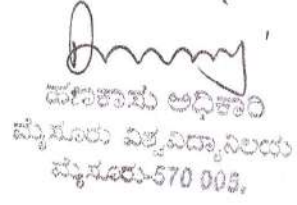 ಹಣಕಾಸು ಅಧಿಕಾರಿ
ಮೈಸೂರು ವಿಶ್ವವಿದ್ಯಾನಿಲಯ
ಮೈಸೂರು-570 005.